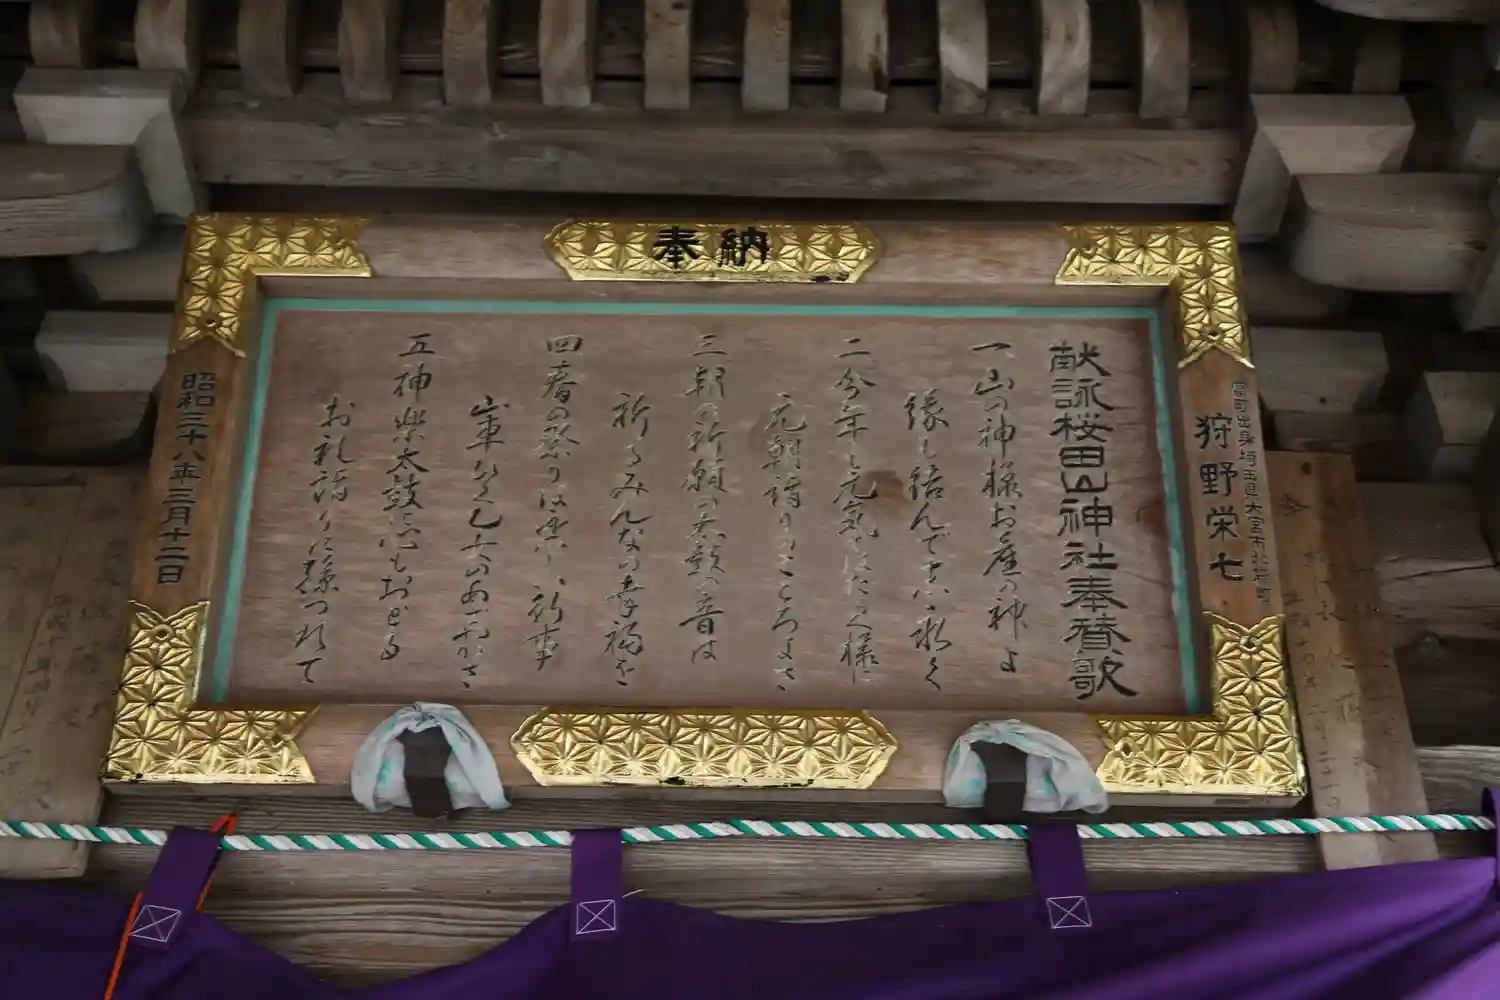 奉納
宮町出身 埼玉県大宮市北袋町
狩野栄七
献詠桜田山神社奉賛歌
一、山の神様お産の神よ
縁も結んで末永く
二、今年も元気ではたらく様に
元朝詣りのこころよさ
三、朝の祈願の太鼓の音は
祈るみんなの幸福を
四、春の祭りは楽しい行事
山車ひく
五、神楽太鼓に心もおどる
お礼詣りに孫つれて
昭和三十八年三月十二日